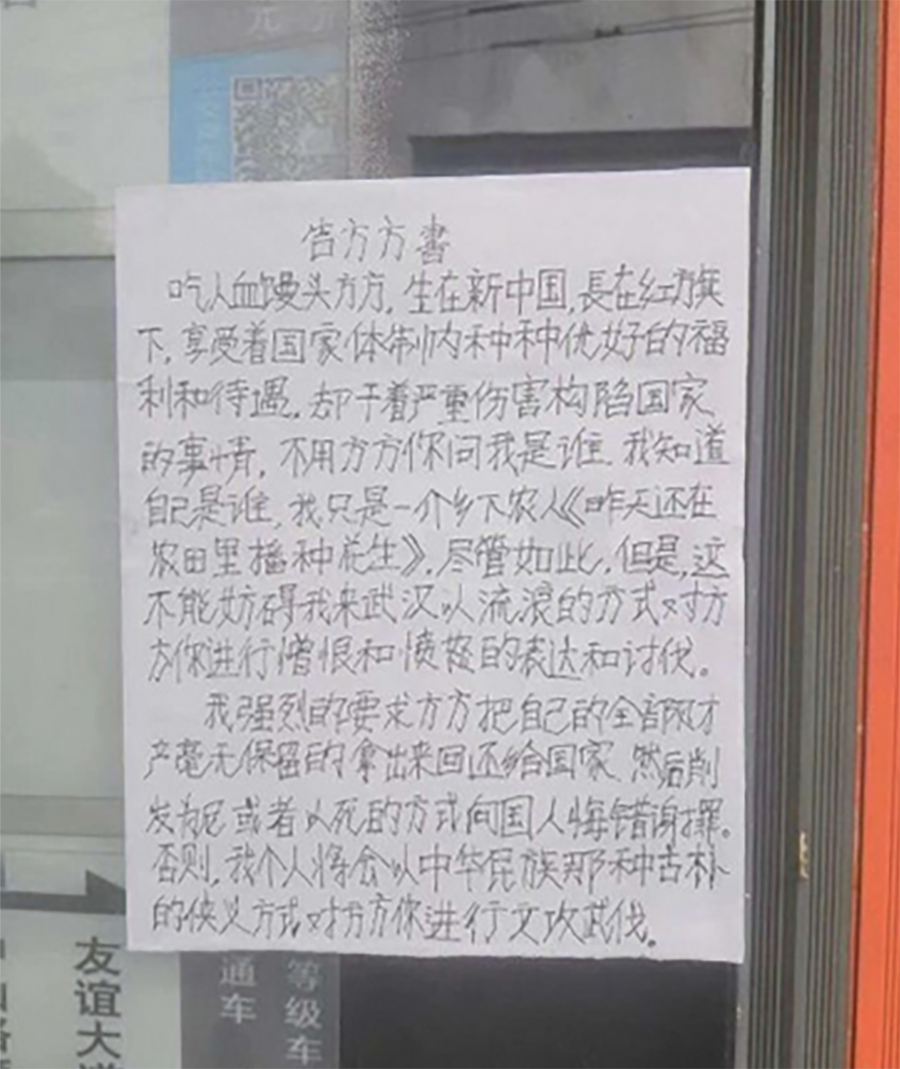 告方方書
吃人血馒头方方，生在新中国，長在红旗
下，享受着国家体制内种种优好的福
利和待遇，却干着严重伤害构陷国家
的事情，不用方方你问我是谁，我知道
自己是谁，我只是一个乡下农人《昨天还在
农田里播种花生》，尽管如此，但是，这
不能妨碍我来武汉以流浪的方式对方
方你进行憎恨和愤怒的表达和讨伐。
我强烈的要求方方把自己的全部财
产毫无保留的拿出来回还给国家，然后削
发为尼或者以死的方式向国人悔错谢罪。
否则，我个人将会以中华民族那种古朴
的侠义方式对方方你进行文攻武伐。
友谊大道
通车
等级车